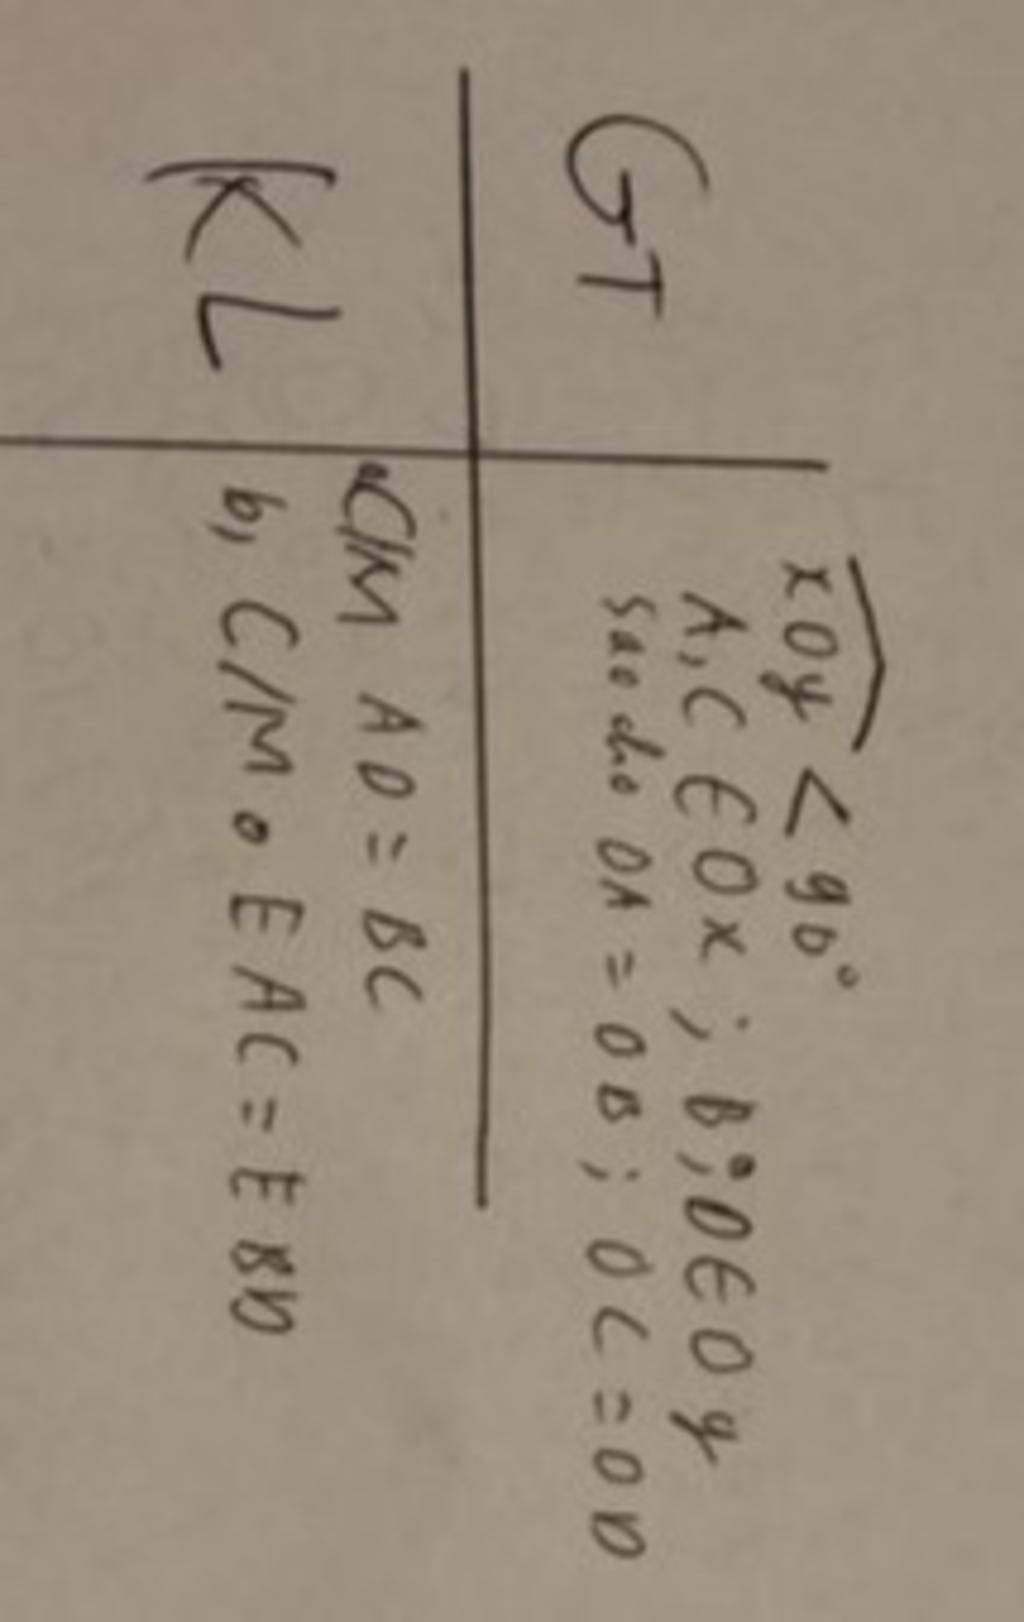 GT
xOy < 90°
A, C ∈ Ox ; B, D ∈ Oy
sao cho OA = OB ; OC = OD
KL
a, C/M AD = BC
b, C/M EAC = EBD